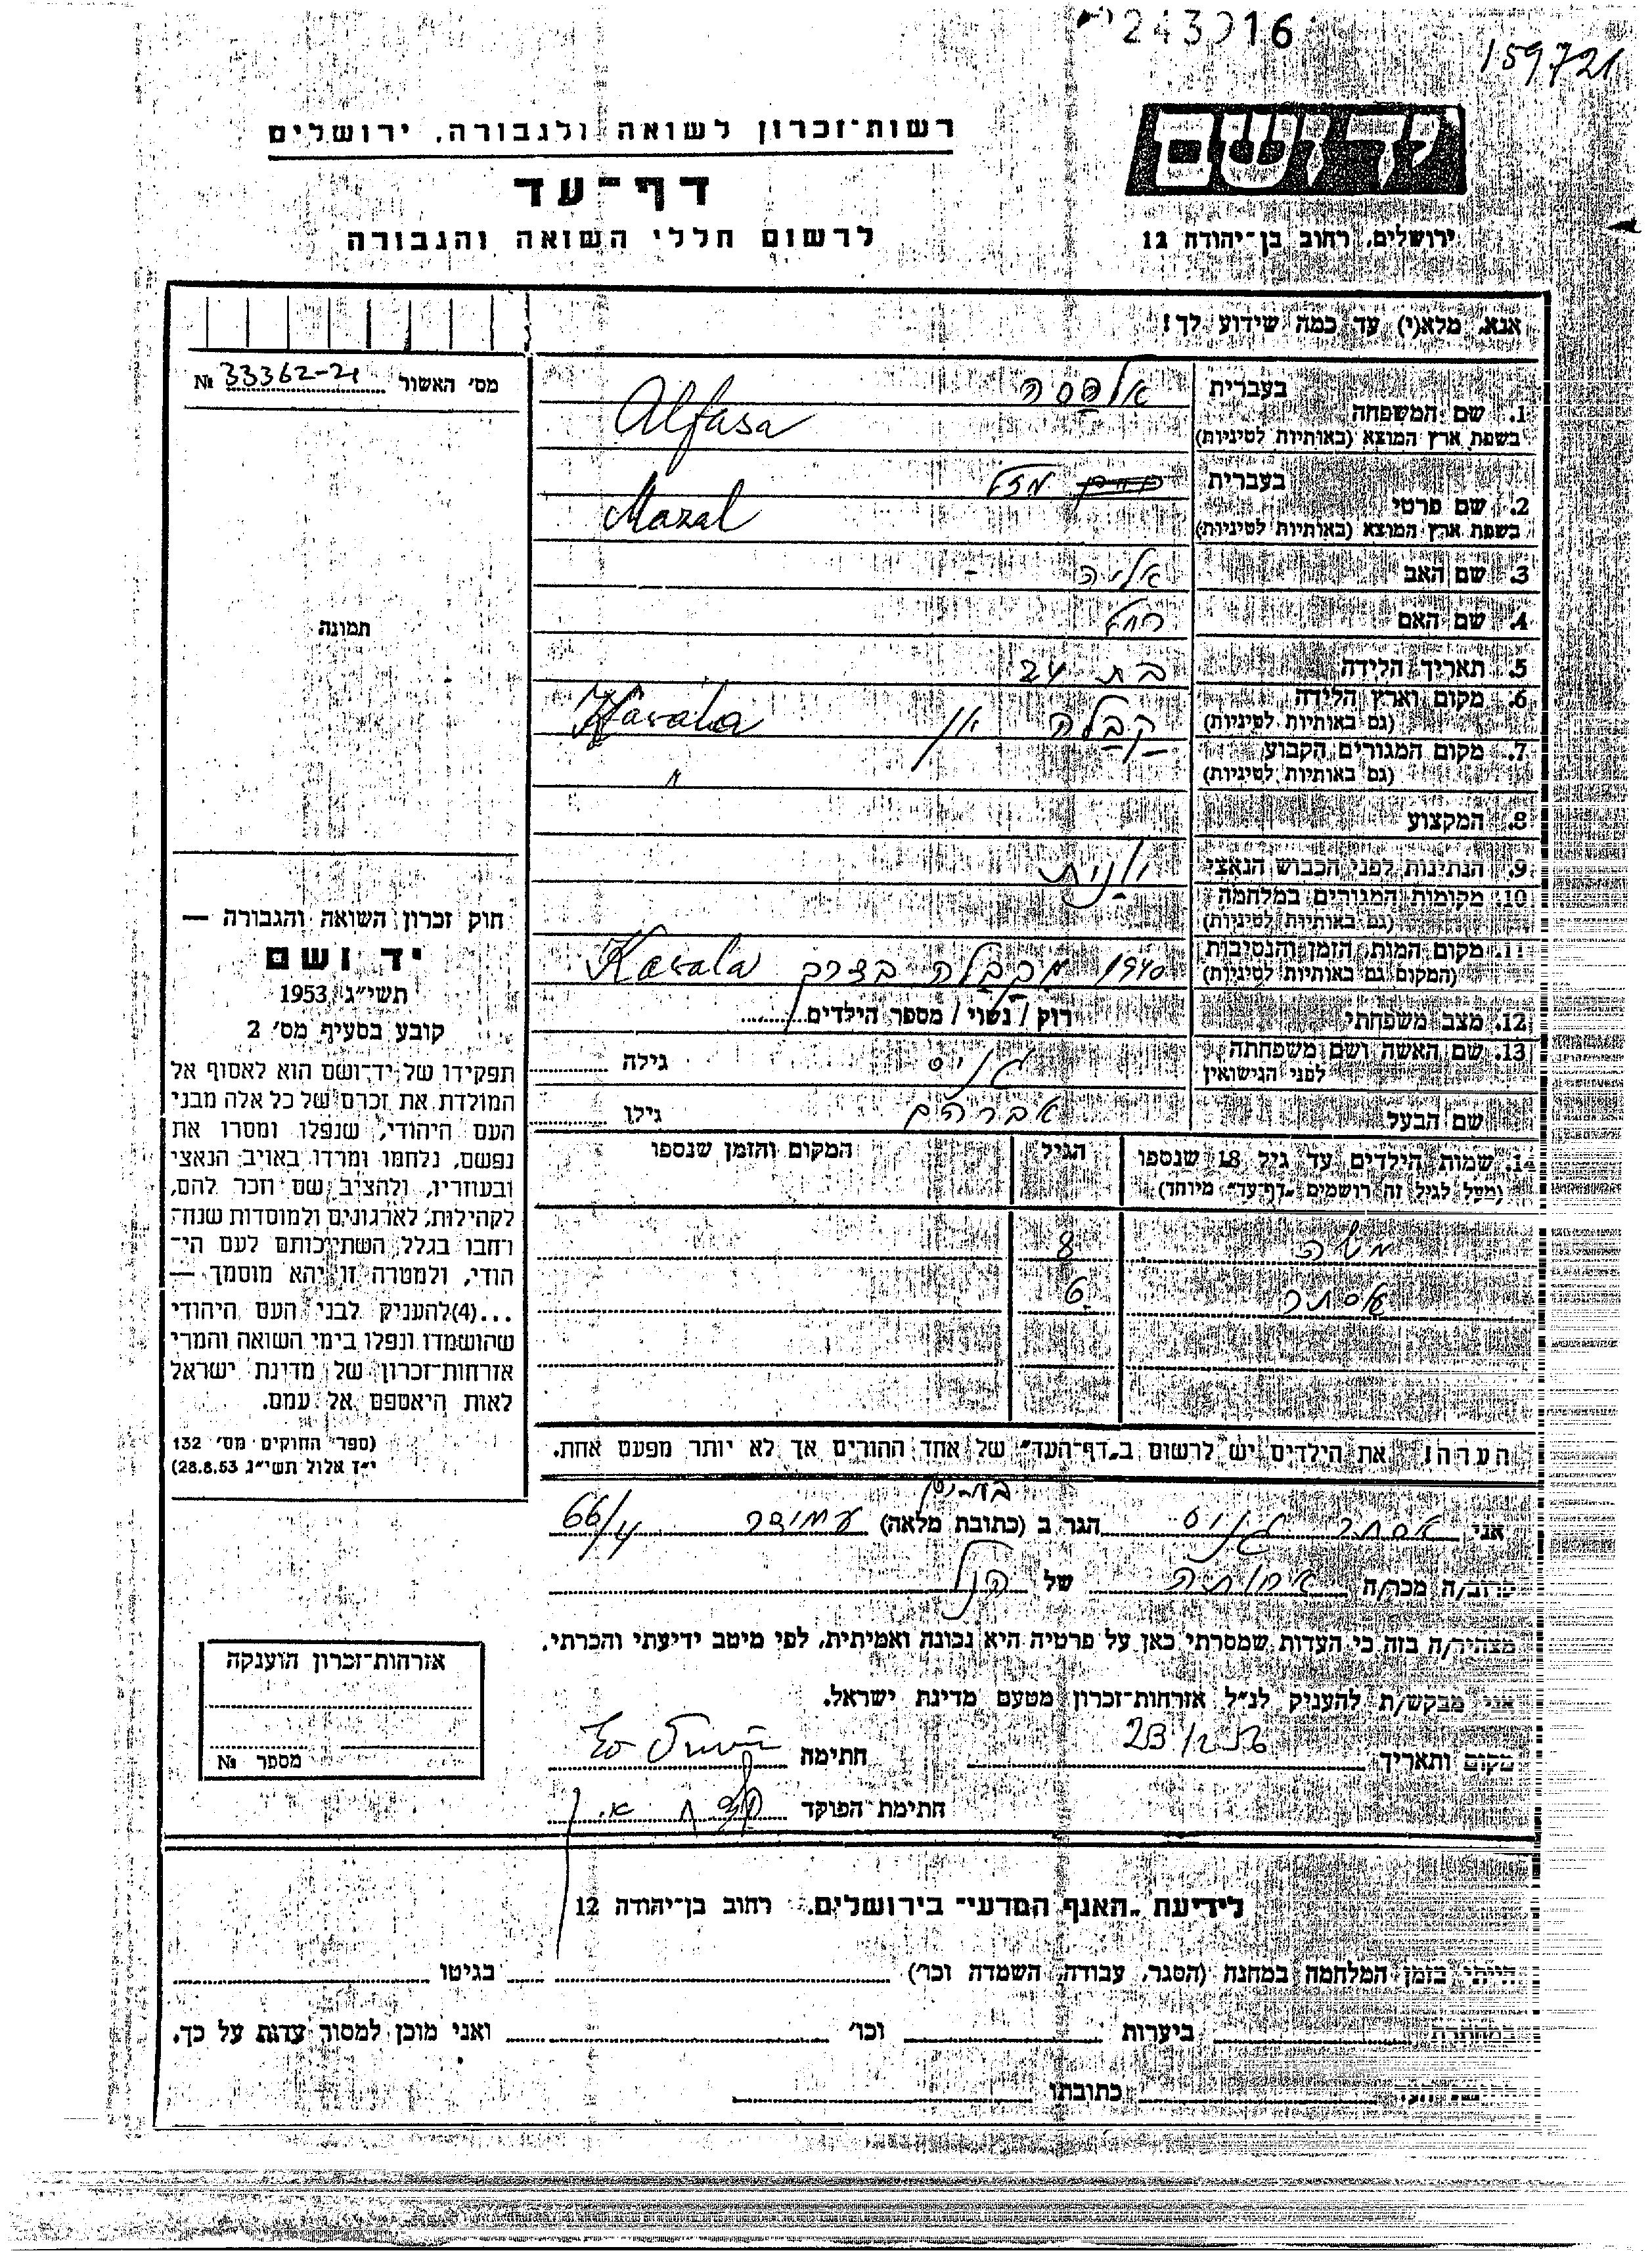 243016
159721
יד ושם
ירושלים, רחוב בן־יהודה 12
רשות־זכרון לשואה ולגבורה, ירושלים
דף־עד
לרשום חללי השואה והגבורה
אנא, מלא(י) עד כמה שידוע לך!
מס׳ האשור 33362-21 №
1. שם המשפחה
בעברית אלפסה
בשפת ארץ המוצא (באותיות לטיניות) Alfasa
2. שם פרטי
בעברית מזל
בשפת ארץ המוצא (באותיות לטיניות) Mazal
3. שם האב אליה
4. שם האם רחל
5. תאריך הלידה בת 24
6. מקום וארץ הלידה
(גם באותיות לטיניות) קבלה יון Kavala
7. מקום המגורים הקבוע
(גם באותיות לטיניות) "
8. המקצוע
9. הנתינות לפני הכבוש הנאצי יונית
10. מקומות המגורים במלחמה
(גם באותיות לטיניות)
11. מקום המות, הזמן והנסיבות
(המקום גם באותיות לטיניות) 1940 מקבלה בדרך Kavala
12. מצב משפחתי רוק / נשוי / מספר הילדים
13. שם האשה ושם משפחתה
לפני הנישואין גילה
שם הבעל אברהם גילו
14. שמות הילדים עד גיל 18 שנספו הגיל המקום והזמן שנספו
(מעל לגיל זה רושמים „דף־עד" מיוחד)
משה 8
אסתר 6
הערה! את הילדים יש לרשום ב„דף־העד" של אחד ההורים אך לא יותר מפעם אחת.
תמונה
חוק זכרון השואה והגבורה —
יד ושם
תשי״ג 1953
קובע בסעיף מס׳ 2
תפקידו של יד־ושם הוא לאסוף אל
המולדת את זכרם של כל אלה מבני
העם היהודי, שנפלו ומסרו את
נפשם, נלחמו ומרדו באויב הנאצי
ובעוזריו, ולהציב שם וזכר להם,
לקהילות, לארגונים ולמוסדות שנח־
רבו בגלל השתייכותם לעם הי־
הודי, ולמטרה זו יהא מוסמך —
...(4) להעניק לבני העם היהודי
שהושמדו ונפלו בימי השואה והמרי
אזרחות־זכרון של מדינת ישראל
לאות היאספם אל עמם.
(ספר החוקים מס׳ 132
י״ז אלול תשי״ג 28.8.53)
אני אסתר הגר ב (כתובת מלאה) עמידר 66/4
קרוב/ה מכר/ה אחותה של הנ"ל
מצהיר/ה בזה כי העדות שמסרתי כאן על פרטיה היא נכונה ואמיתית, לפי מיטב ידיעתי והכרתי.
אני מבקש/ת להעניק לנ״ל אזרחות־זכרון מטעם מדינת ישראל.
מקום ותאריך 23/12.56 חתימה
חתימת הפוקד
אזרחות־זכרון הוענקה
מספר №
לידיעת „האגף המדעי" בירושלים, רחוב בן־יהודה 12
הייתי בזמן המלחמה במחנה (הסגר, עבודה, השמדה וכו׳) בגיטו
במחתרת ביערות וכו׳ ואני מוכן למסור עדות על כך.
כתובתו